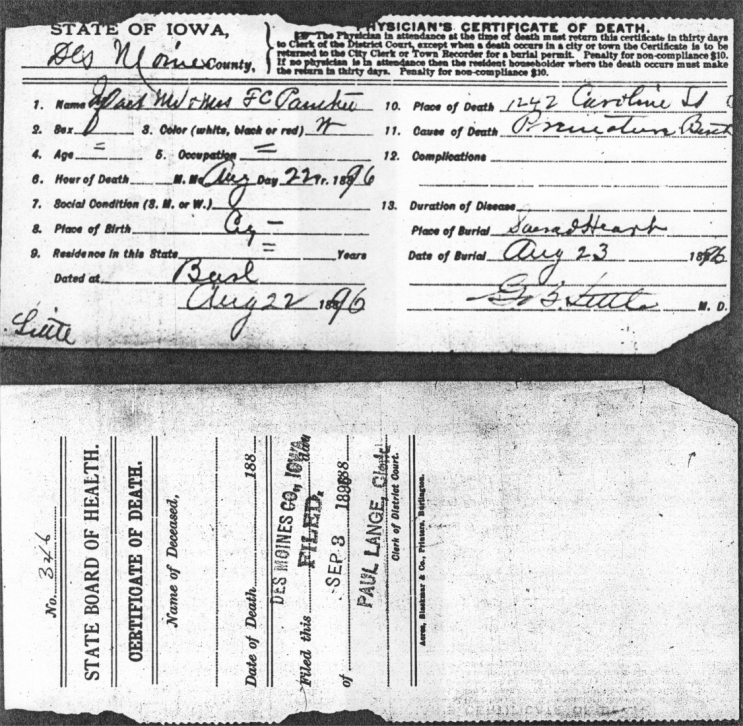 STATE OF IOWA,
Des Moines County,
PHYSICIAN'S CERTIFICATE OF DEATH.
The Physician in attendance at the time of death must return this certificate in thirty days
to Clerk of the District Court, except when a death occurs in a city or town the Certificate is to be
returned to the City Clerk or Town Recorder for a burial permit. Penalty for non-compliance $10.
If no physician is in attendance then the resident householder where the death occurs must make
the return in thirty days. Penalty for non-compliance $10.
1. Name Mr & Mrs F C
2. Sex 3. Color (white, black or red) W
4. Age = 5. Occupation =
6. Hour of Death M. Mo Aug Day 22 Yr. 1896
7. Social Condition (S. M. or W.)
8. Place of Birth City -
9. Residence in this State = Years
Dated at Burl
Aug 22 1896
Little
10. Place of Death 1242 Caroline St
11. Cause of Death Premature Birth
12. Complications
13. Duration of Disease
Place of Burial Sacred Heart
Date of Burial Aug 23 1896
Little M. D.
No. 346
STATE BOARD OF HEALTH.
CERTIFICATE OF DEATH.
Name of Deceased,
Date of Death 188
DES MOINES CO., IOWA
Filed this FILED. day
of SEP 3 1896 188
PAUL LANGE, Clerk
Clerk of District Court.
Acres, Blackmar & Co., Printers, Burlington.